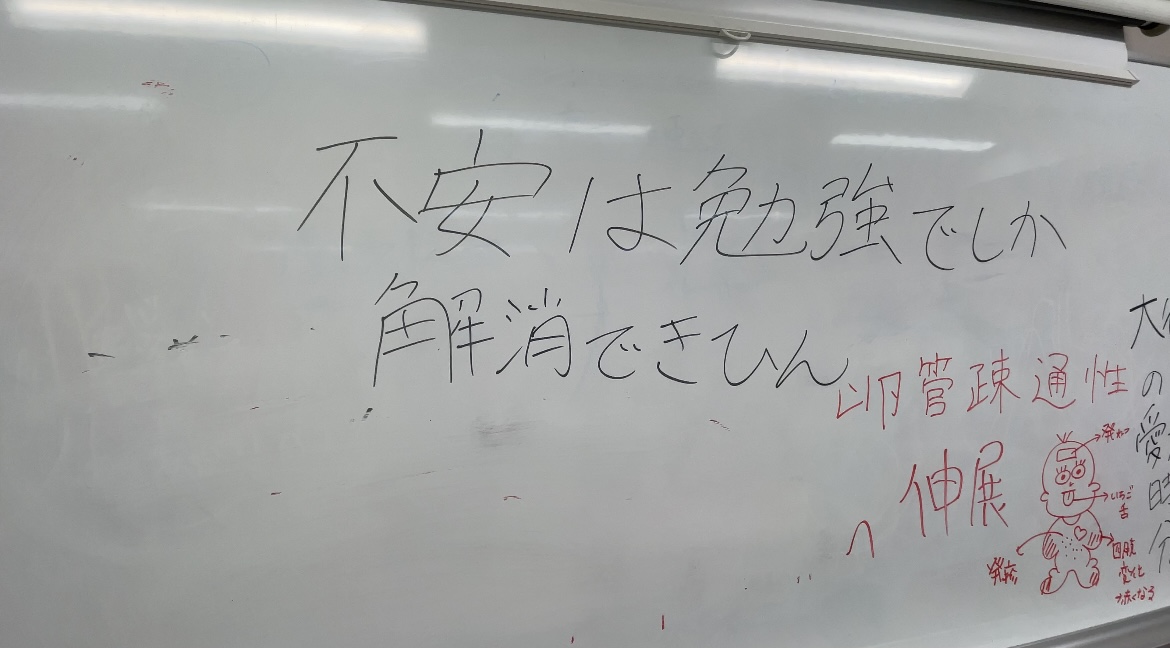 不安は勉強でしか
解消できひん
卵管疎通性
伸展
発熱
いちご
舌
発疹
四肢
変化
赤くなる
の
愛
時